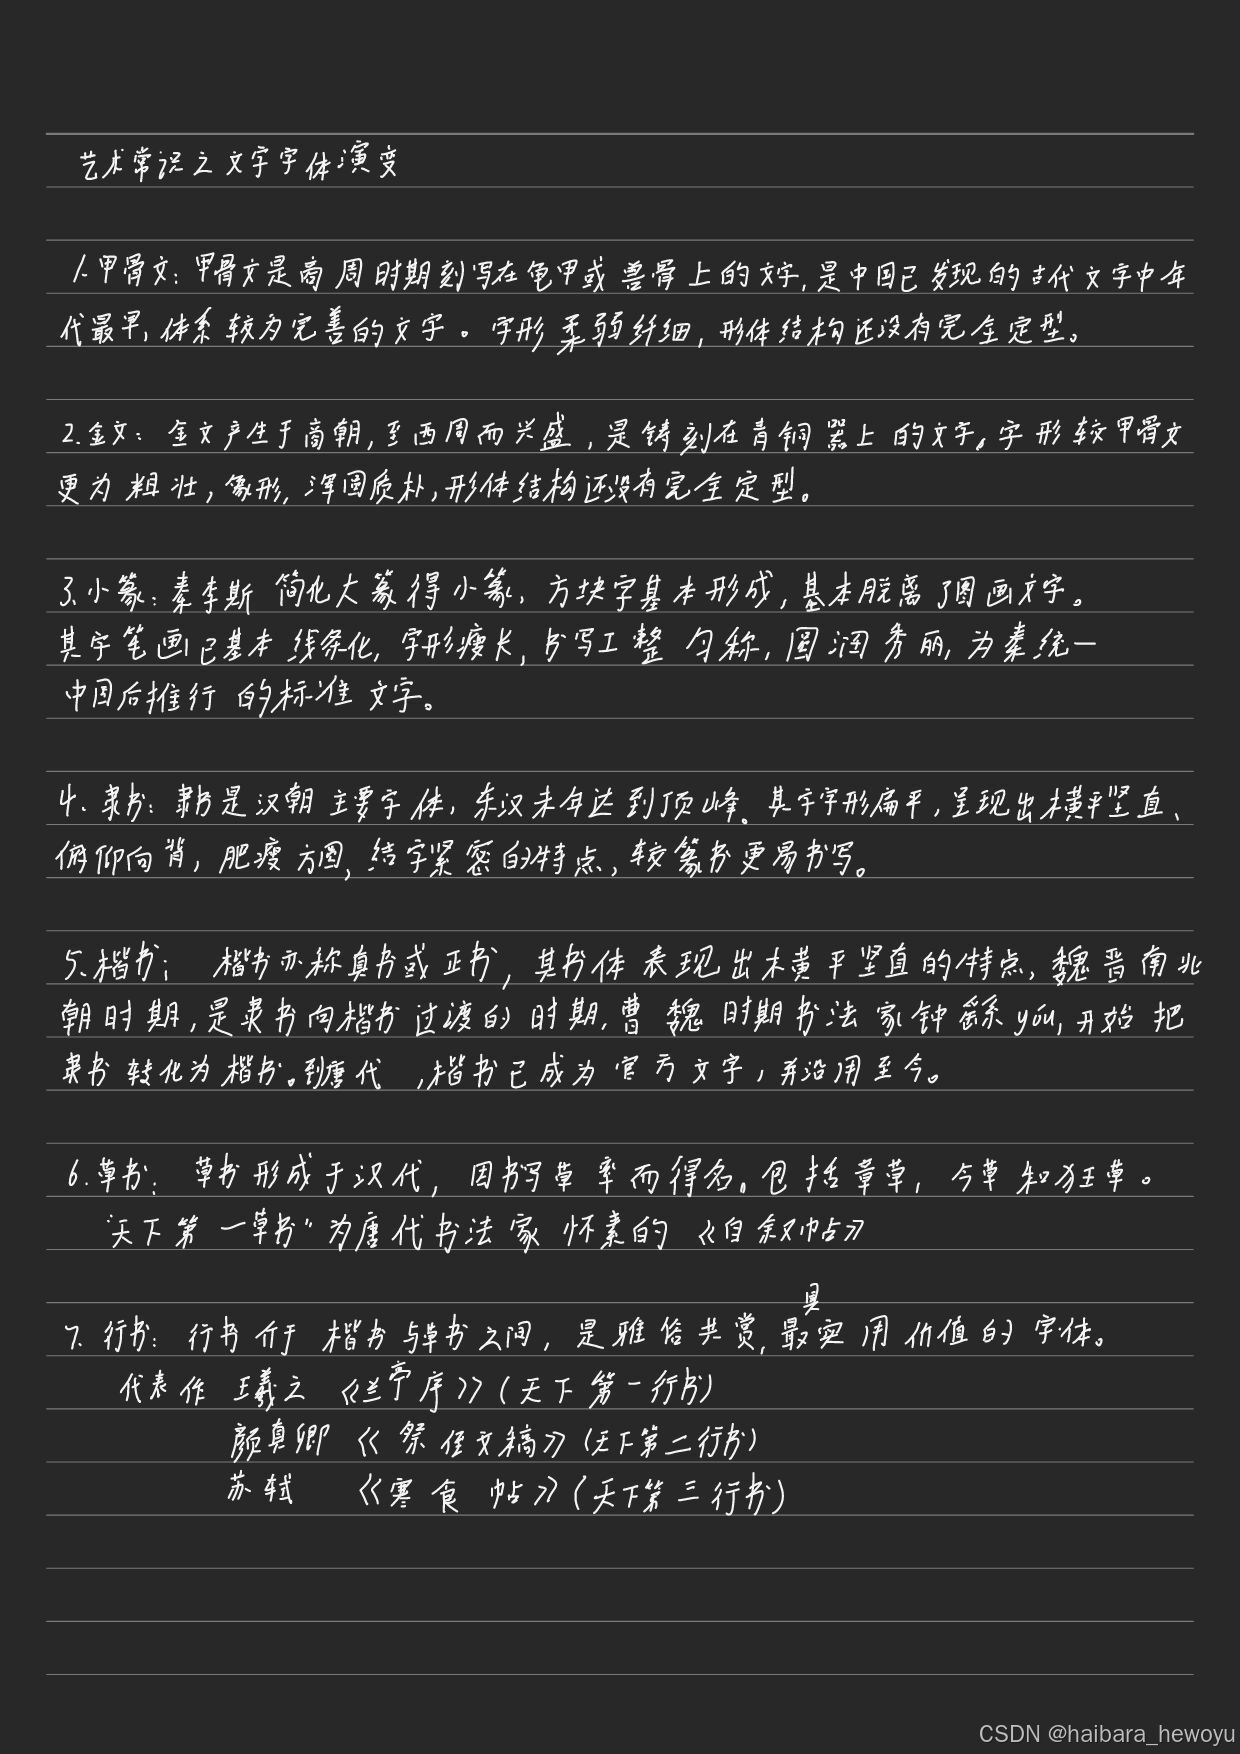 艺术常识之文字字体演变
1.甲骨文：甲骨文是商周时期刻写在龟甲或兽骨上的文字，是中国已发现的古代文字中年
代最早，体系较为完善的文字。字形柔弱纤细，形体结构还没有完全定型。
2.金文：金文产生于商朝，至西周而兴盛，是铸刻在青铜器上的文字。字形较甲骨文
更为粗壮，象形，浑圆质朴，形体结构还没有完全定型。
3.小篆：秦李斯简化大篆得小篆，方块字基本形成，基本脱离了图画文字。
其字笔画已基本线条化，字形瘦长，书写工整匀称，圆润秀丽，为秦统一
中国后推行的标准文字。
4.隶书：隶书是汉朝主要字体，东汉末年达到顶峰。其字字形扁平，呈现出横平竖直、
俯仰向背，肥瘦方圆，结字紧密的特点，较篆书更易书写。
5.楷书：楷书亦称真书或正书，其书体表现出横平竖直的特点，魏晋南北
朝时期，是隶书向楷书过渡的时期，曹魏时期书法家钟繇you，开始把
隶书转化为楷书。到唐代，楷书已成为官方文字，并沿用至今。
6.草书：草书形成于汉代，因书写草率而得名。包括章草，今草和狂草。
"天下第一草书"为唐代书法家怀素的《自叙帖》
7.行书：行书介于楷书与草书之间，是雅俗共赏，最具实用价值的字体。
代表作 王羲之《兰亭序》（天下第一行书）
颜真卿《祭侄文稿》（天下第二行书）
苏轼《寒食帖》（天下第三行书）
CSDN @haibara_hewoyu